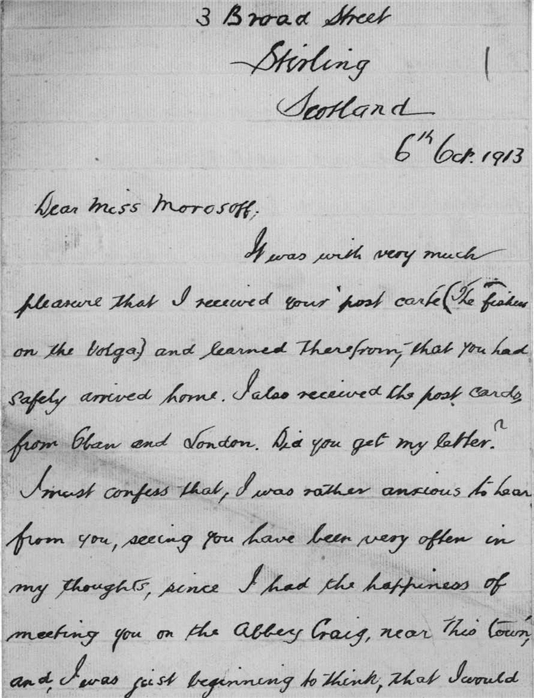 3 Broad Street
Stirling
Scotland
6th Oct. 1913
Dear Miss Morosoff,
It was with very much
pleasure that I received your post carte (The fishers
on the Volga) and learned therefrom, that you had
safely arrived home. I also received the post cards
from Oban and London. Did you get my letter?
I must confess that, I was rather anxious to hear
from you, seeing you have been very often in
my thoughts, since I had the happiness of
meeting you on the Abbey Craig, near this town,
and, I was just beginning to think, that I would